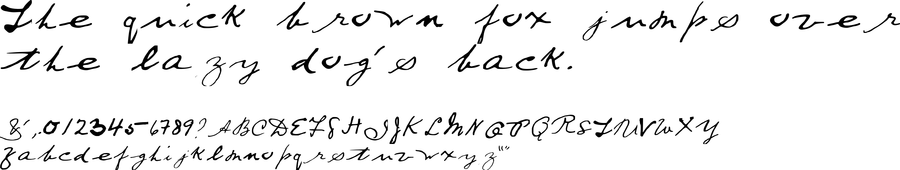 The quick brown fox jumps over
the lazy dog's back.
&',.0123456789? ABCDEFGHIJKLMNOPQRSTUVWXY
Zabcdefghijklmnopqrstuvwxyz""